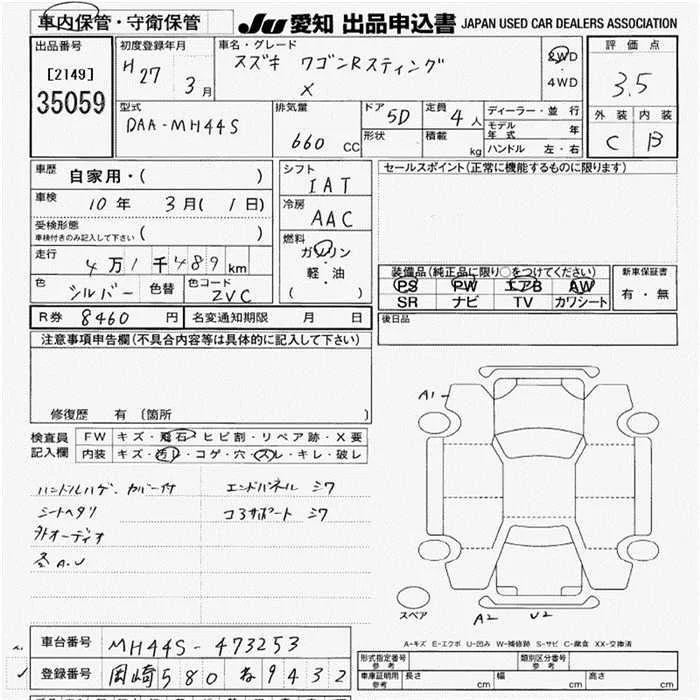 車内保管・守衛保管
JU 愛知 出品申込書 JAPAN USED CAR DEALERS ASSOCIATION
出品番号
[2149]
35059
初度登録年月
H 27 3月
車名・グレード
スズキ ワゴンRスティング
X
2WD
・
4WD
評価点
3.5
外装 内装
C B
型式
DAA-MH44S
排気量
660 CC
ドア 5D
形状
定員 4人
積載 kg
ディーラー・並行
モデル年式 年
ハンドル 左・右
車歴
自家用・( )
車検
10年 3月( 1日)
受検形態
車検付きのみ記入して下さい ( )
走行
4万1千489km
色 シルバー 色替 色コード ZVC
シフト
IAT
冷房
AAC
燃料
ガソリン
・
軽・油
( )
セールスポイント(正常に機能するものに限ります)
装備品(純正品に限り○をつけてください)
PS PW エアB AW
SR ナビ TV カワシート
新車保証書
有・無
R券 8460 円 名変通知期限 月 日
後日品
注意事項申告欄(不具合内容等は具体的に記入して下さい)
修復歴 有 (箇所 )
検査員記入欄
FW キズ・飛石・ヒビ割・リペア跡・X要
内装 キズ・汚レ・コゲ・穴・スレ・キレ・破レ
ハンドルハゲ、カバー付 エンドパネル シワ
シートヘタリ コアサポート シワ
外オーディオ
A1
スペア
A2 U2
A-キズ E-エクボ U-凹み W-補修跡 S-サビ C-腐食 XX-交換済
車台番号 MH44S-473253
登録番号 岡崎580 ね9432
形式指定番号
参考
類別区分番号
参考
車庫証明用
参考
長さ cm 幅 cm 高さ cm